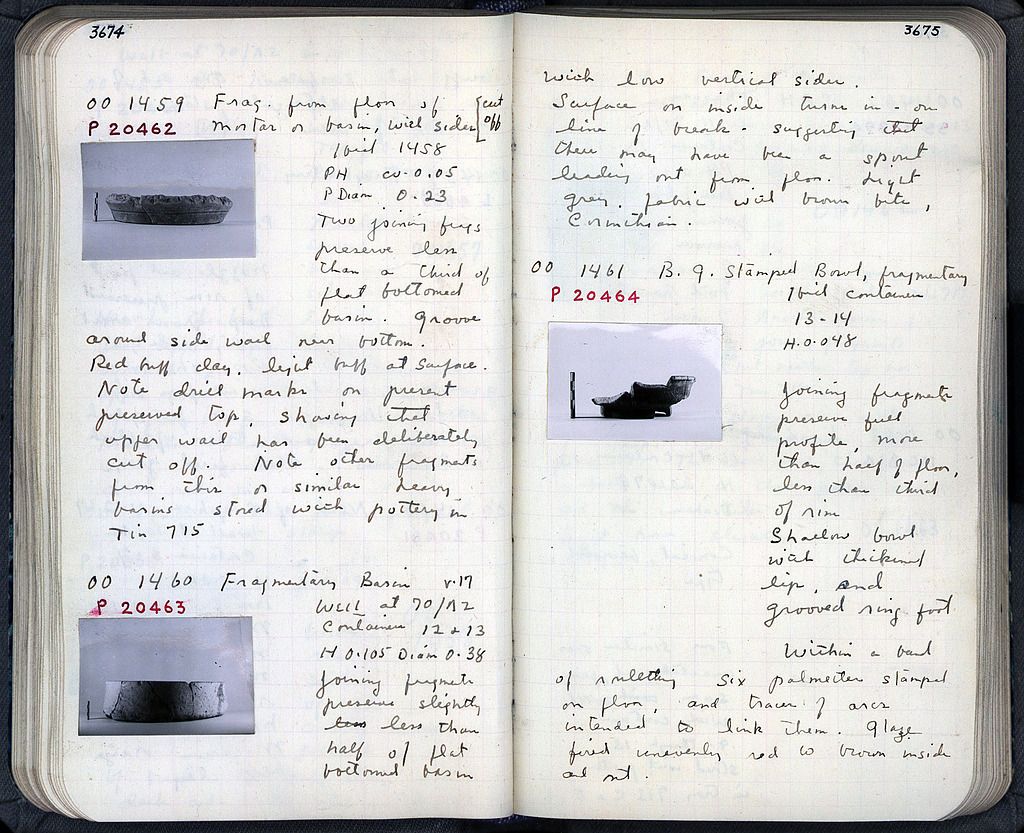 3674
OO 1459 Frag. from floor of {cut
P 20462 mortar or basin, with sides {off
Ibid 1458
PH cv. 0.05
P Diam. 0.23
Two joining frags
preserve less
than a third of
flat bottomed
basin. Groove
around side wall near bottom.
Red buff clay, light buff at surface.
Note drill marks on present
preserved top, showing that
upper wall has been deliberately
cut off. Note other fragments
from this or similar heavy
basins stored with pottery in
Tin 715
OO 1460 Fragmentary Basin v.17
P 20463 Well at 70/ΛΖ
Container 12 + 13
H 0.105 Diam 0.38
Joining fragments
preserve slightly
less less than
half of flat
bottomed basin
3675
with low vertical sides.
Surface on inside turns in on
line of break suggesting that
there may have been a spout
leading out from floor. Light
grey fabric with brown bits,
Corinthian.
OO 1461 B. g. Stamped Bowl, fragmentary
P 20464 Ibid container
13-14
H. 0.048
Joining fragments
preserve full
profile, more
than half of floor,
less than third
of rim
Shallow bowl
with thickened
lip, and
grooved ring foot
Within a band
of rouletting six palmettes stamped
on floor, and traces of arcs
intended to link them. Glaze
fired unevenly red to brown inside
and out.